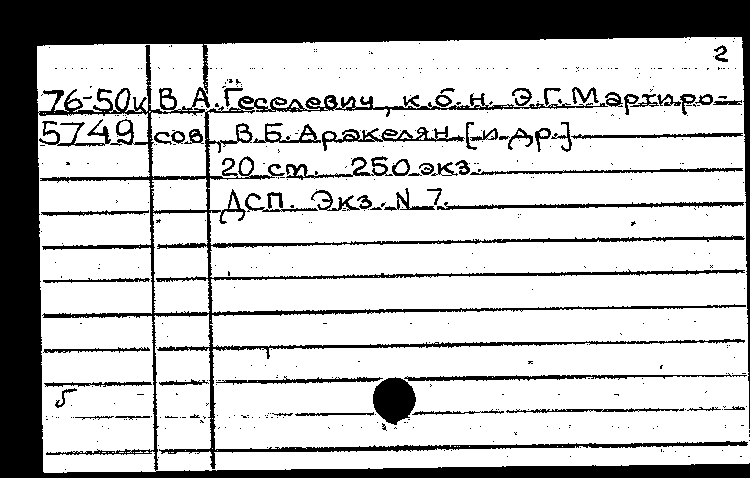 2
76-50к В.А. Геселевич, к.б.н. Э.Г. Мартиро-
5749 сов, В.Б. Аракелян [и др.]
20 см. 250 экз.
ДСП. Экз. N 7.
б